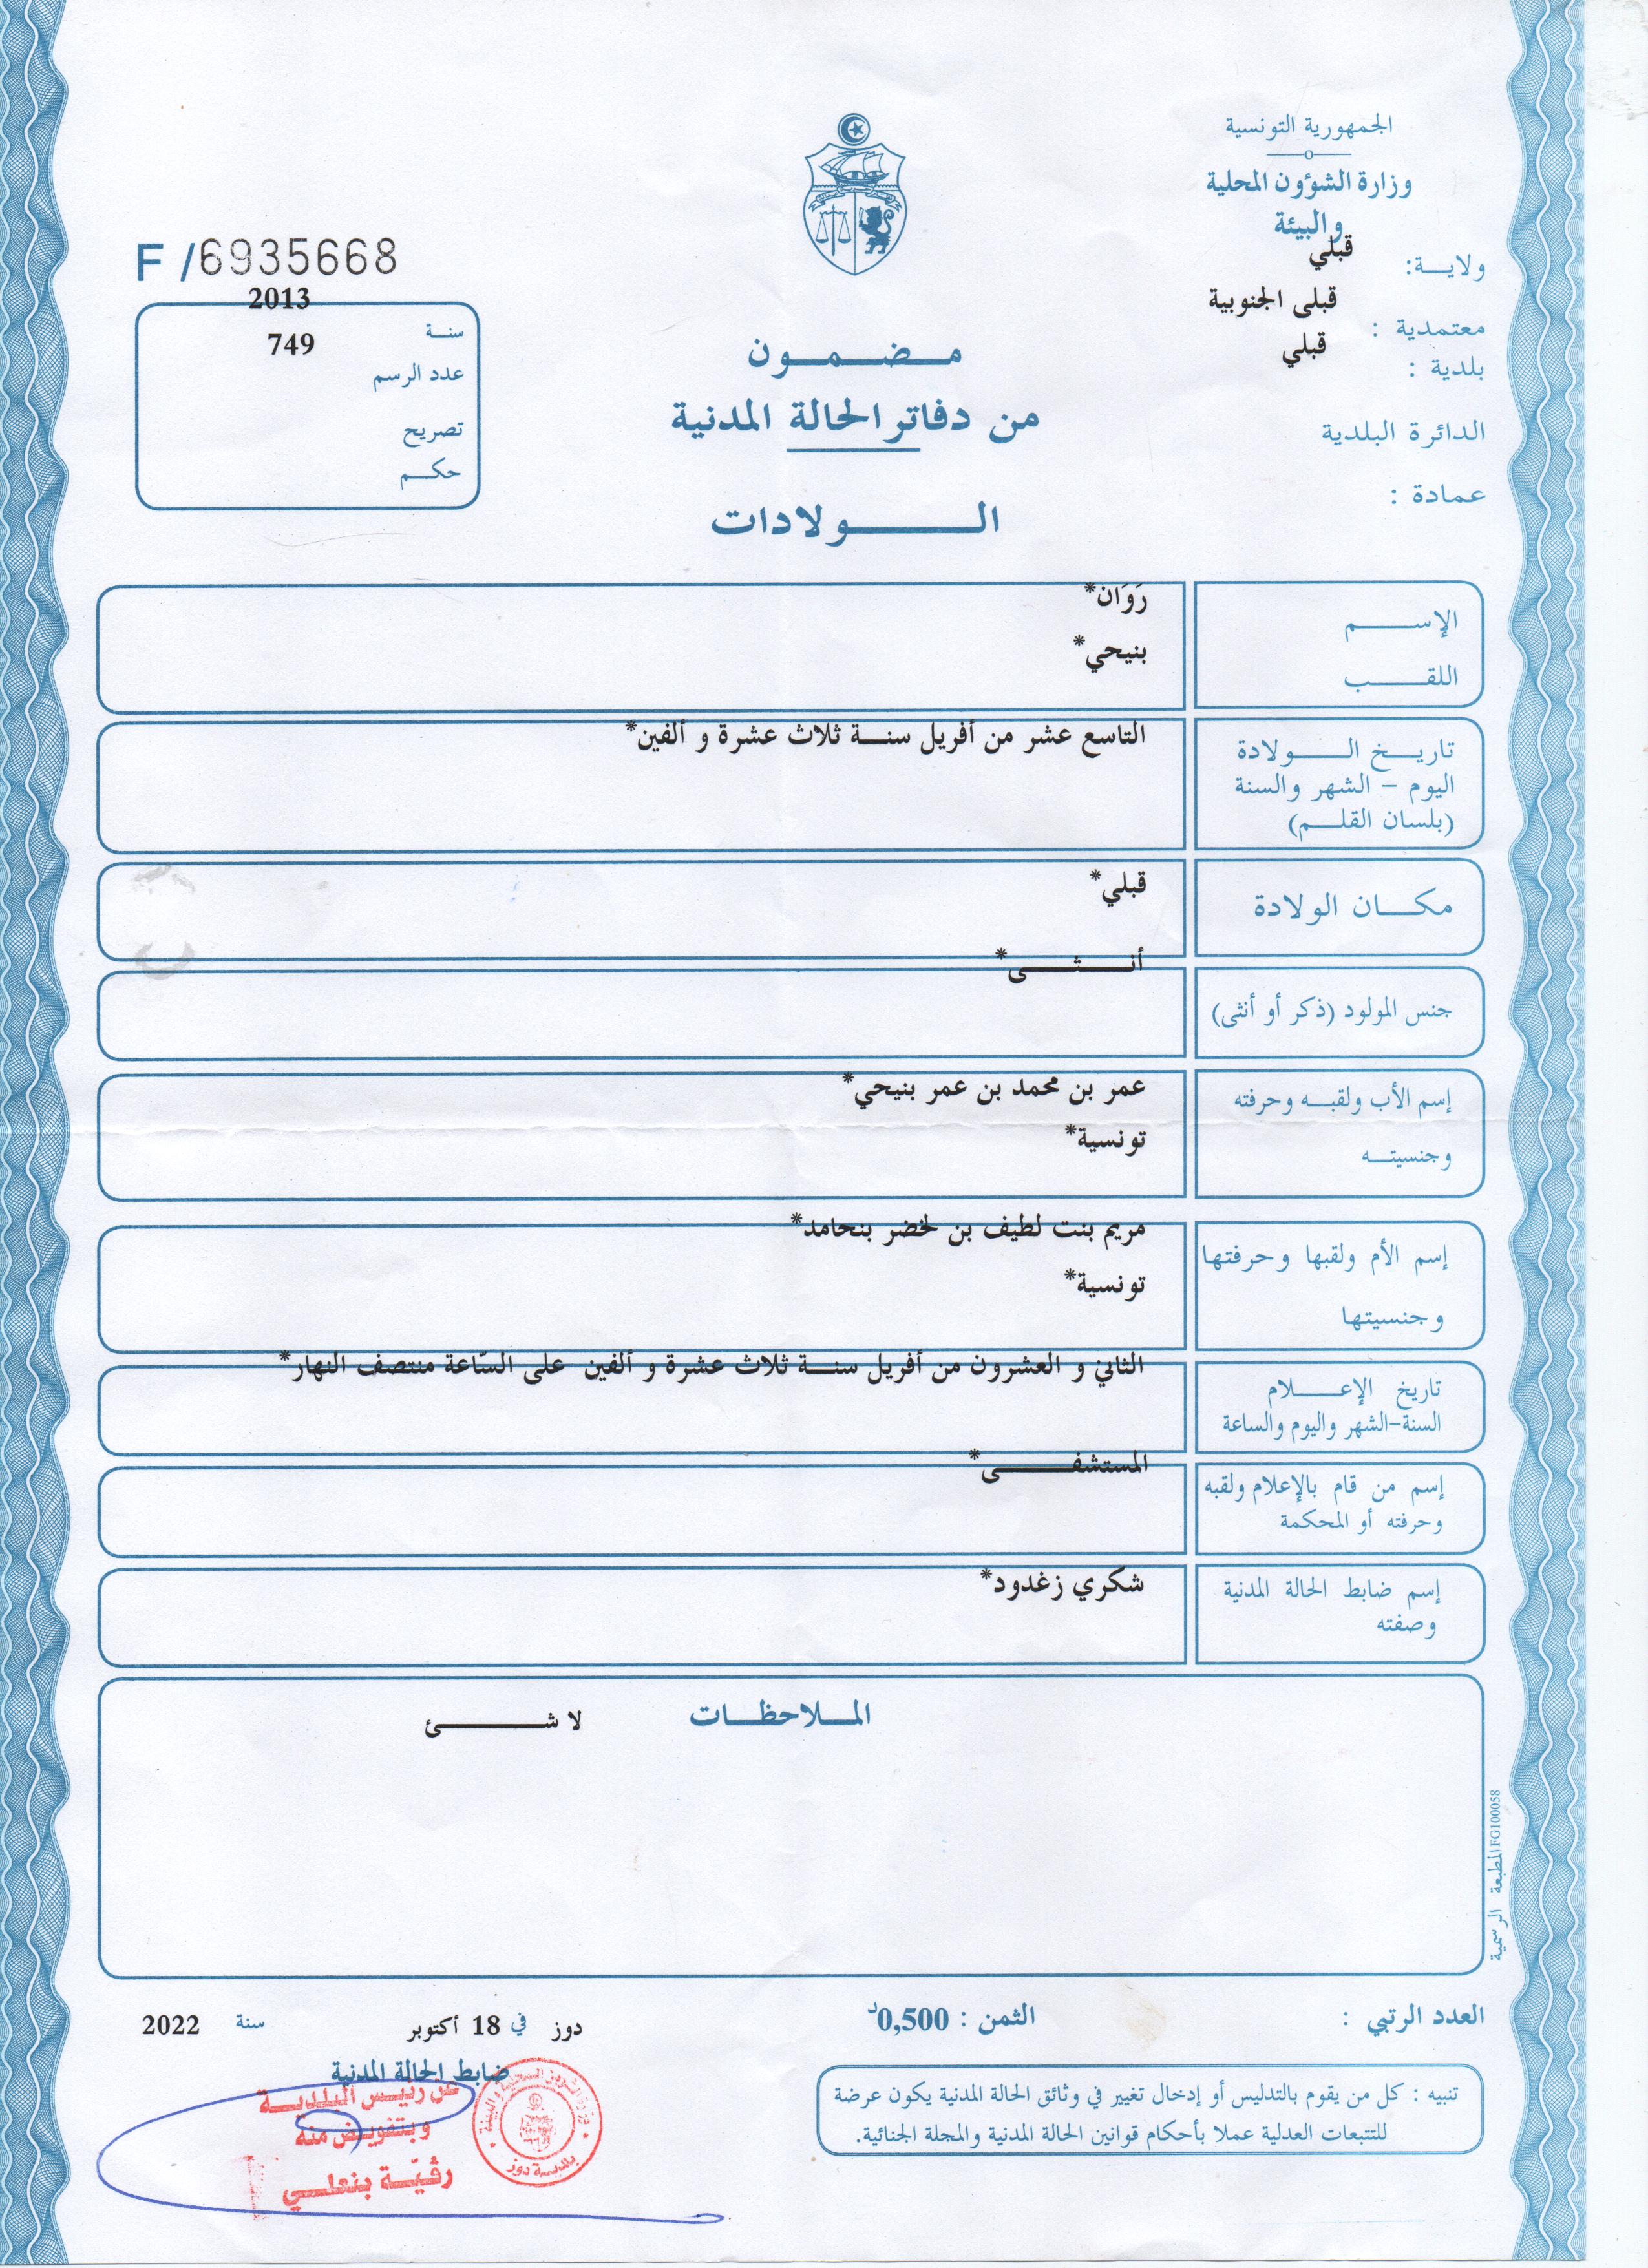 الجمهورية التونسية
وزارة الشؤون المحلية
والبيئة
ولاية: قبلي
معتمدية : قبلى الجنوبية
بلدية : قبلي
الدائرة البلدية
عمادة :
F /6935668
سنة 2013
عدد الرسم 749
تصريح
حكم
مضمون
من دفاتر الحالة المدنية
الولادات
الإسم رَوَان*
اللقب بنيحي*
تاريخ الولادة التاسع عشر من أفريل سنة ثلاث عشرة و ألفين*
اليوم - الشهر والسنة
(بلسان القلم)
مكان الولادة قبلي*
جنس المولود (ذكر أو أنثى) أنثى*
إسم الأب ولقبه وحرفته عمر بن محمد بن عمر بنيحي*
وجنسيته تونسية*
إسم الأم ولقبها وحرفتها مريم بنت لطيف بن لخضر بنحامد*
وجنسيتها تونسية*
تاريخ الإعلام الثاني و العشرون من أفريل سنة ثلاث عشرة و ألفين على السّاعة منتصف النهار*
السنة-الشهر واليوم والساعة
إسم من قام بالإعلام ولقبه المستشفى*
وحرفته أو المحكمة
إسم ضابط الحالة المدنية شكري زغدود*
وصفته
الملاحظات
لا شئ
المطبعة الرسمية FG100058
العدد الرتبي :
الثمن : 0,500د
دوز في 18 أكتوبر سنة 2022
ضابط الحالة المدنية
عن رئيس البلدية
وبتفويض منه
رقيّة بنعلي
بلدية دوز
تنبيه : كل من يقوم بالتدليس أو إدخال تغيير في وثائق الحالة المدنية يكون عرضة
للتتبعات العدلية عملا بأحكام قوانين الحالة المدنية والمجلة الجنائية.